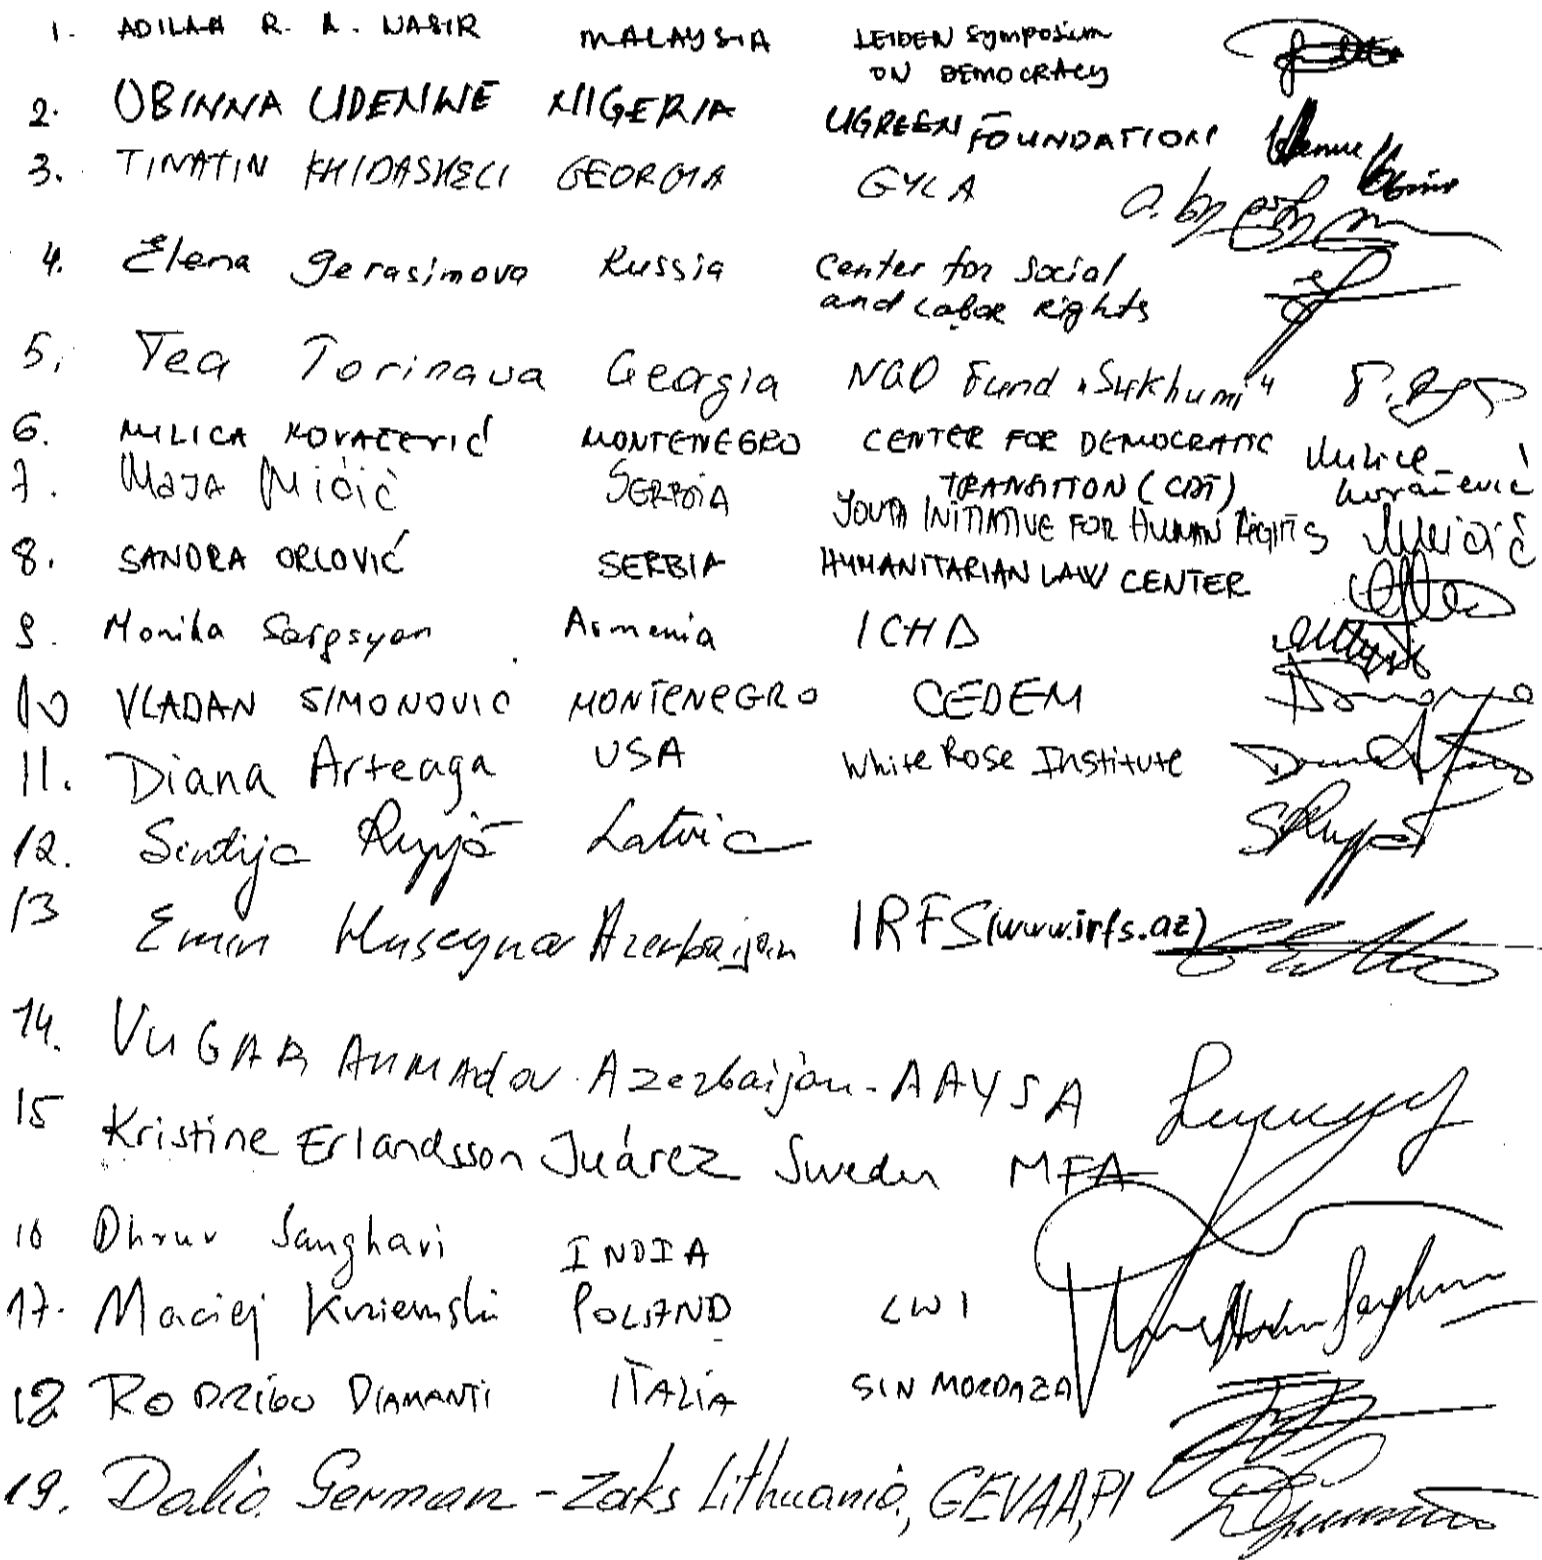 1. ADILAH R. A. NASIR MALAYSIA LEIDEN Symposium
ON DEMOCRACY
2. OBINNA UDENWE NIGERIA UGREEN FOUNDATION
3. TINATIN KHIDASHELI GEORGIA GYLA
4. Elena Gerasimova Russia Center for Social
and Labor Rights
5. Tea Torinava Georgia NGO Fund „Sukhumi"
6. MILICA KOVAČEVIĆ MONTENEGRO CENTER FOR DEMOCRATIC
TRANSITION (CDT)
7. MAJA Mićić SERBIA YOUTH INITIATIVE FOR HUMAN RIGHTS
8. SANDRA ORLOVIĆ SERBIA HUMANITARIAN LAW CENTER
9. Monika Sargsyan Armenia ICHD
10 VLADAN SIMONOVIC MONTENEGRO CEDEM
11. Diana Arteaga USA White Rose Institute
12. Sindija Latvia
13 Emin Huseynov Azerbaijan IRFS (www.irfs.az)
14. VUGAR AHMADOV. Azerbaijan - AAYSA
15 Kristine Erlandsson Juárez Sweden MFA
16 Dhruv Sanghavi INDIA
17. Maciej POLAND LWI
18 RODRIGO DIAMANTI ITALIA SIN MORDAZA
19. Dalia German-Zaks Lithuania, GEVAA, PI